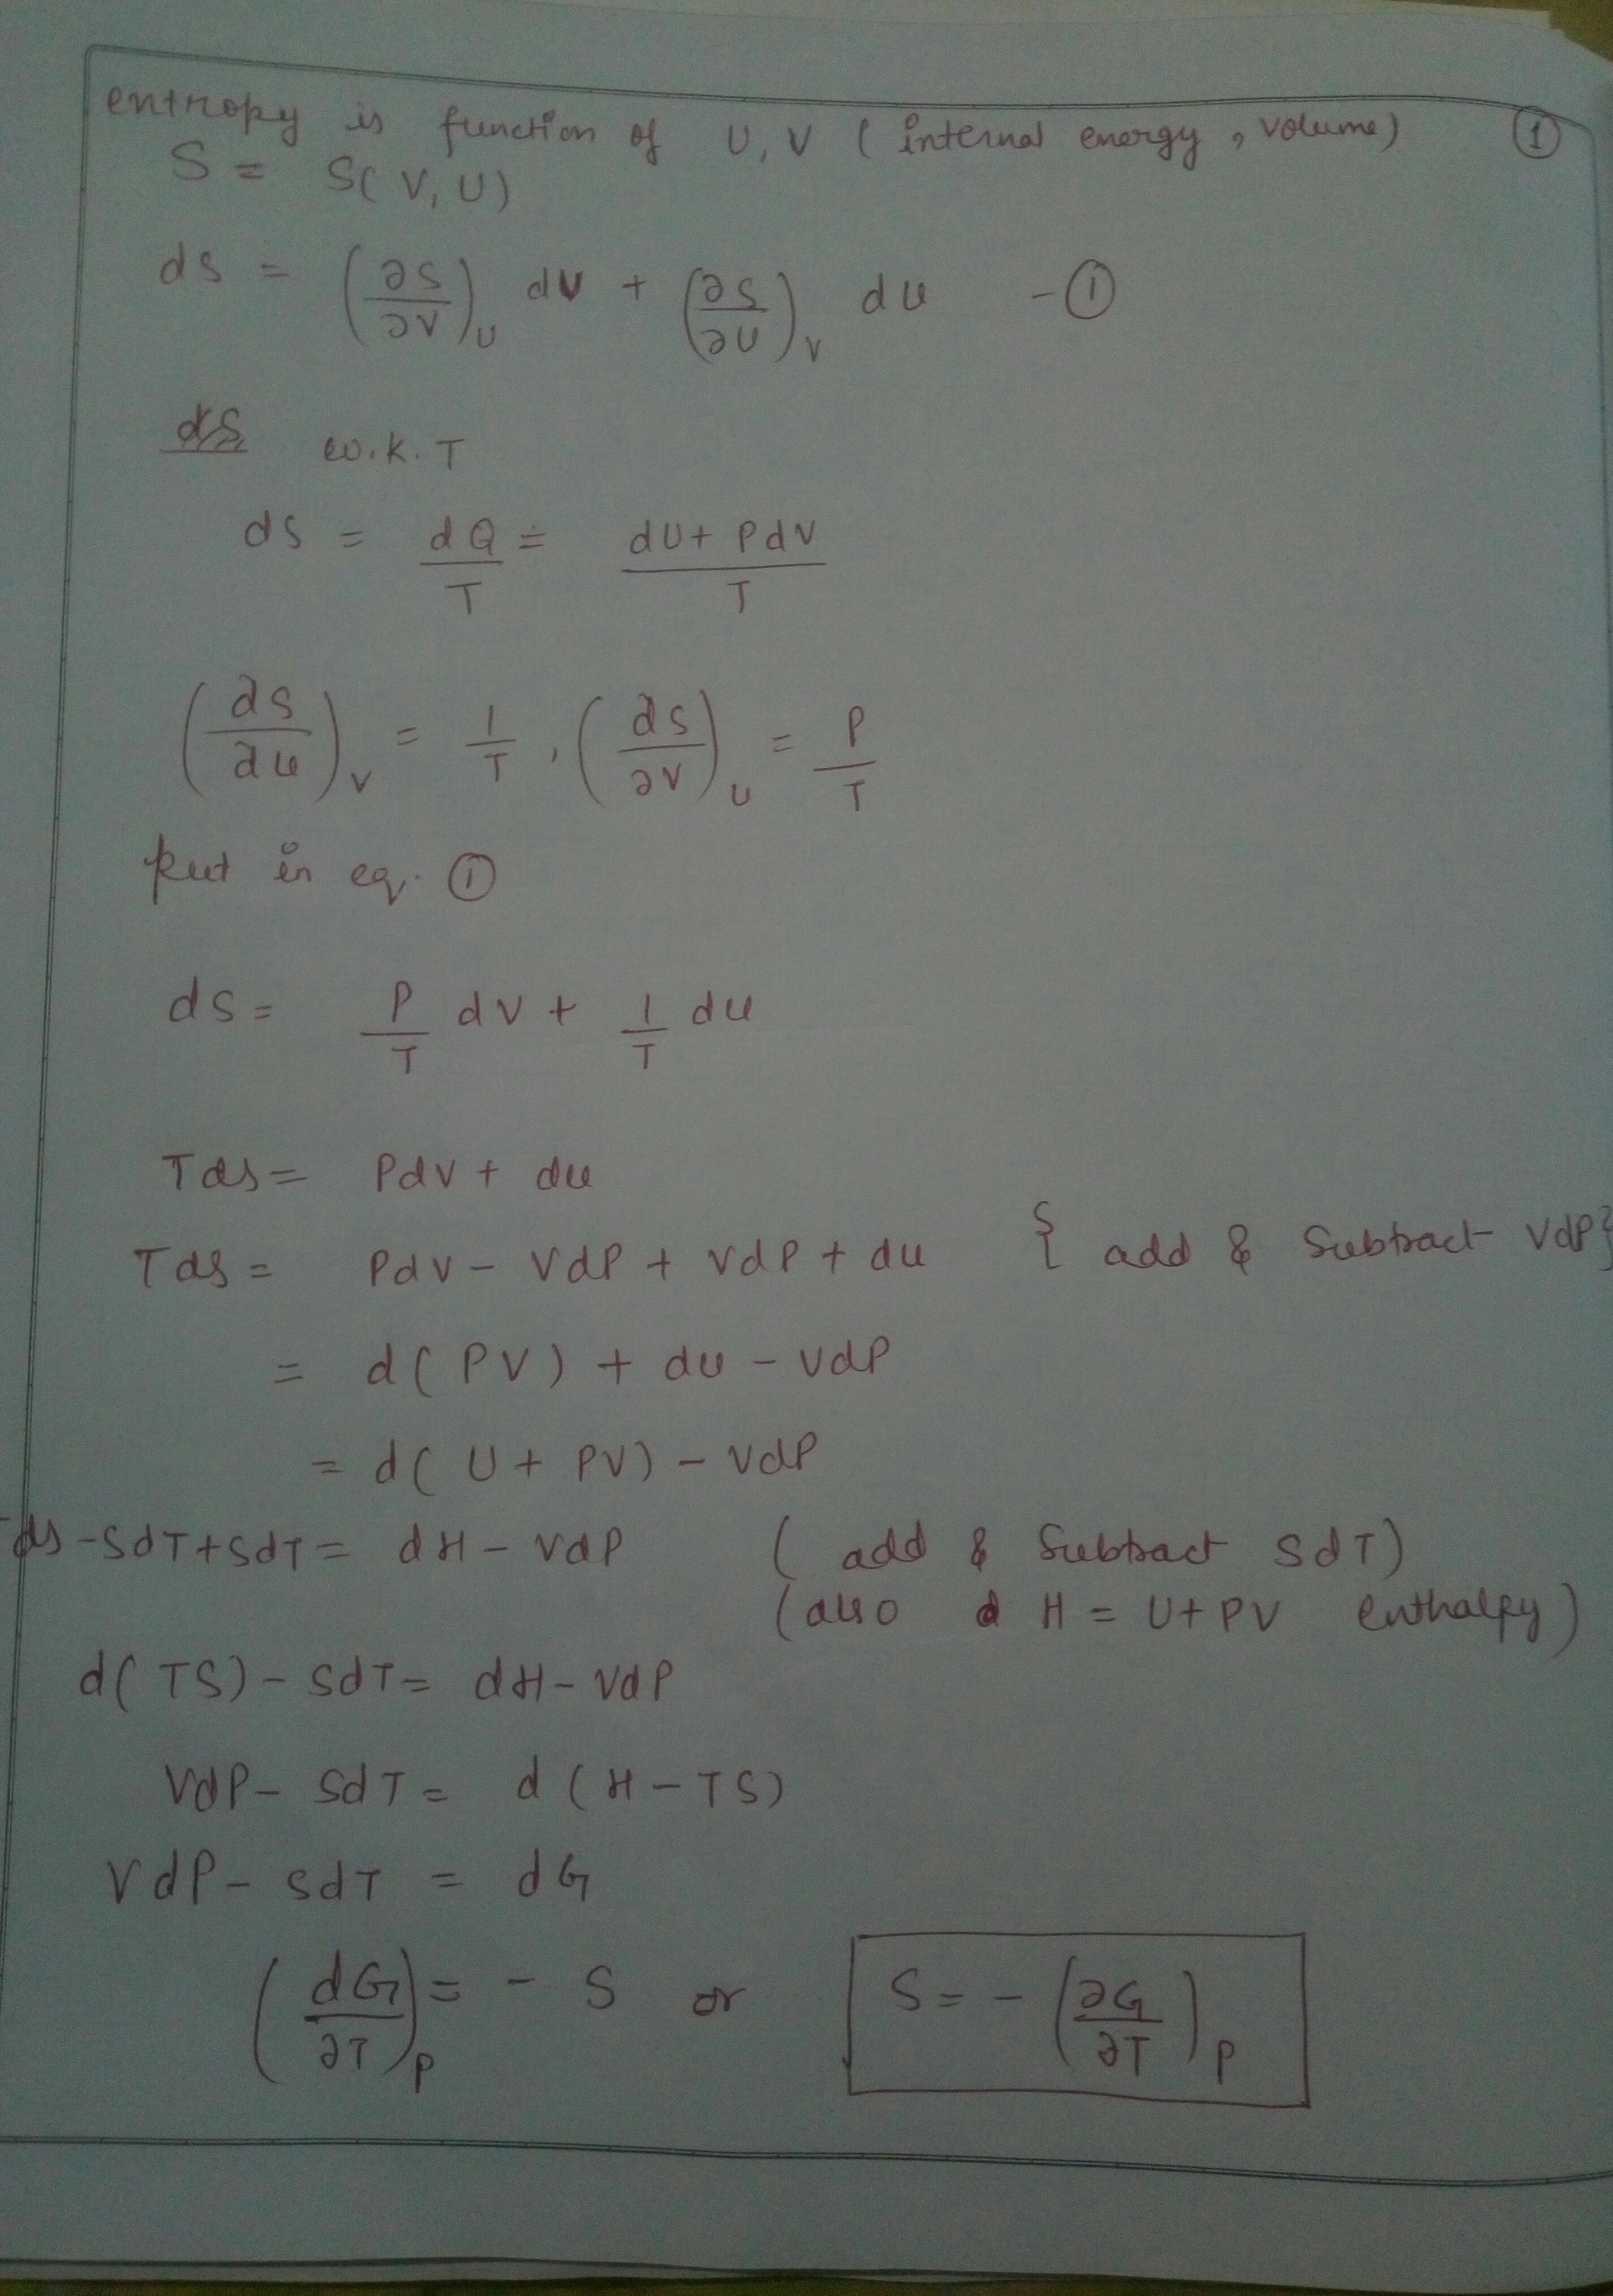 entropy is function of U, V ( internal energy, volume) ①
S = S( V, U)
dS = (∂S/∂V)_U dV + (∂S/∂U)_V dU - ①
w.k.T
dS = dQ/T = dU + PdV/T
(∂S/∂U)_V = 1/T , (∂S/∂V)_U = P/T
Put in eq. ①
dS = P/T dV + 1/T dU
TdS = PdV + dU
TdS = PdV - VdP + VdP + dU { add & Subtract VdP}
= d( PV) + dU - VdP
= d( U + PV) - VdP
TdS - SdT + SdT = dH - VdP ( add & Subtract SdT)
(also H = U + PV enthalpy)
d( TS) - SdT = dH - VdP
VdP - SdT = d ( H - TS)
VdP - SdT = dG
(dG/∂T)_P = - S or S = - (∂G/∂T)_P